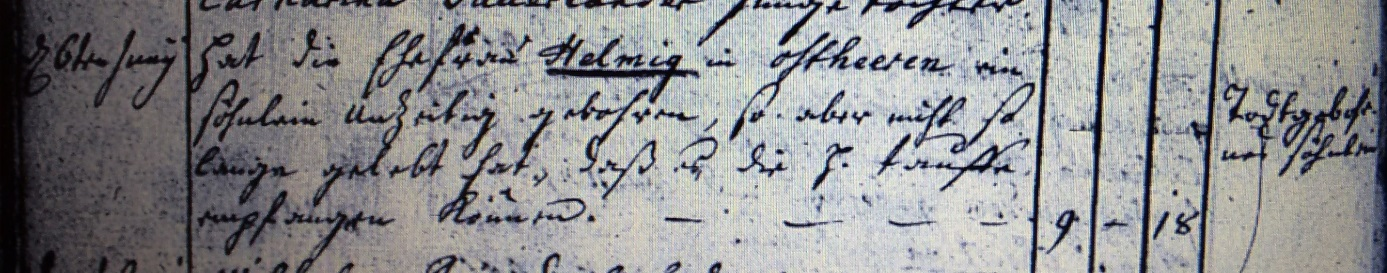 Catharina
d 26ten Juny hat die Ehefrau Helmig in ostheeren ein
söhnlein unzeitig gebohren, so aber nicht so
lange gelebt hat, daß es die h. tauffe
empfangen können. — — — — 9 – 18
Todtgebohr-
nes söhnlein